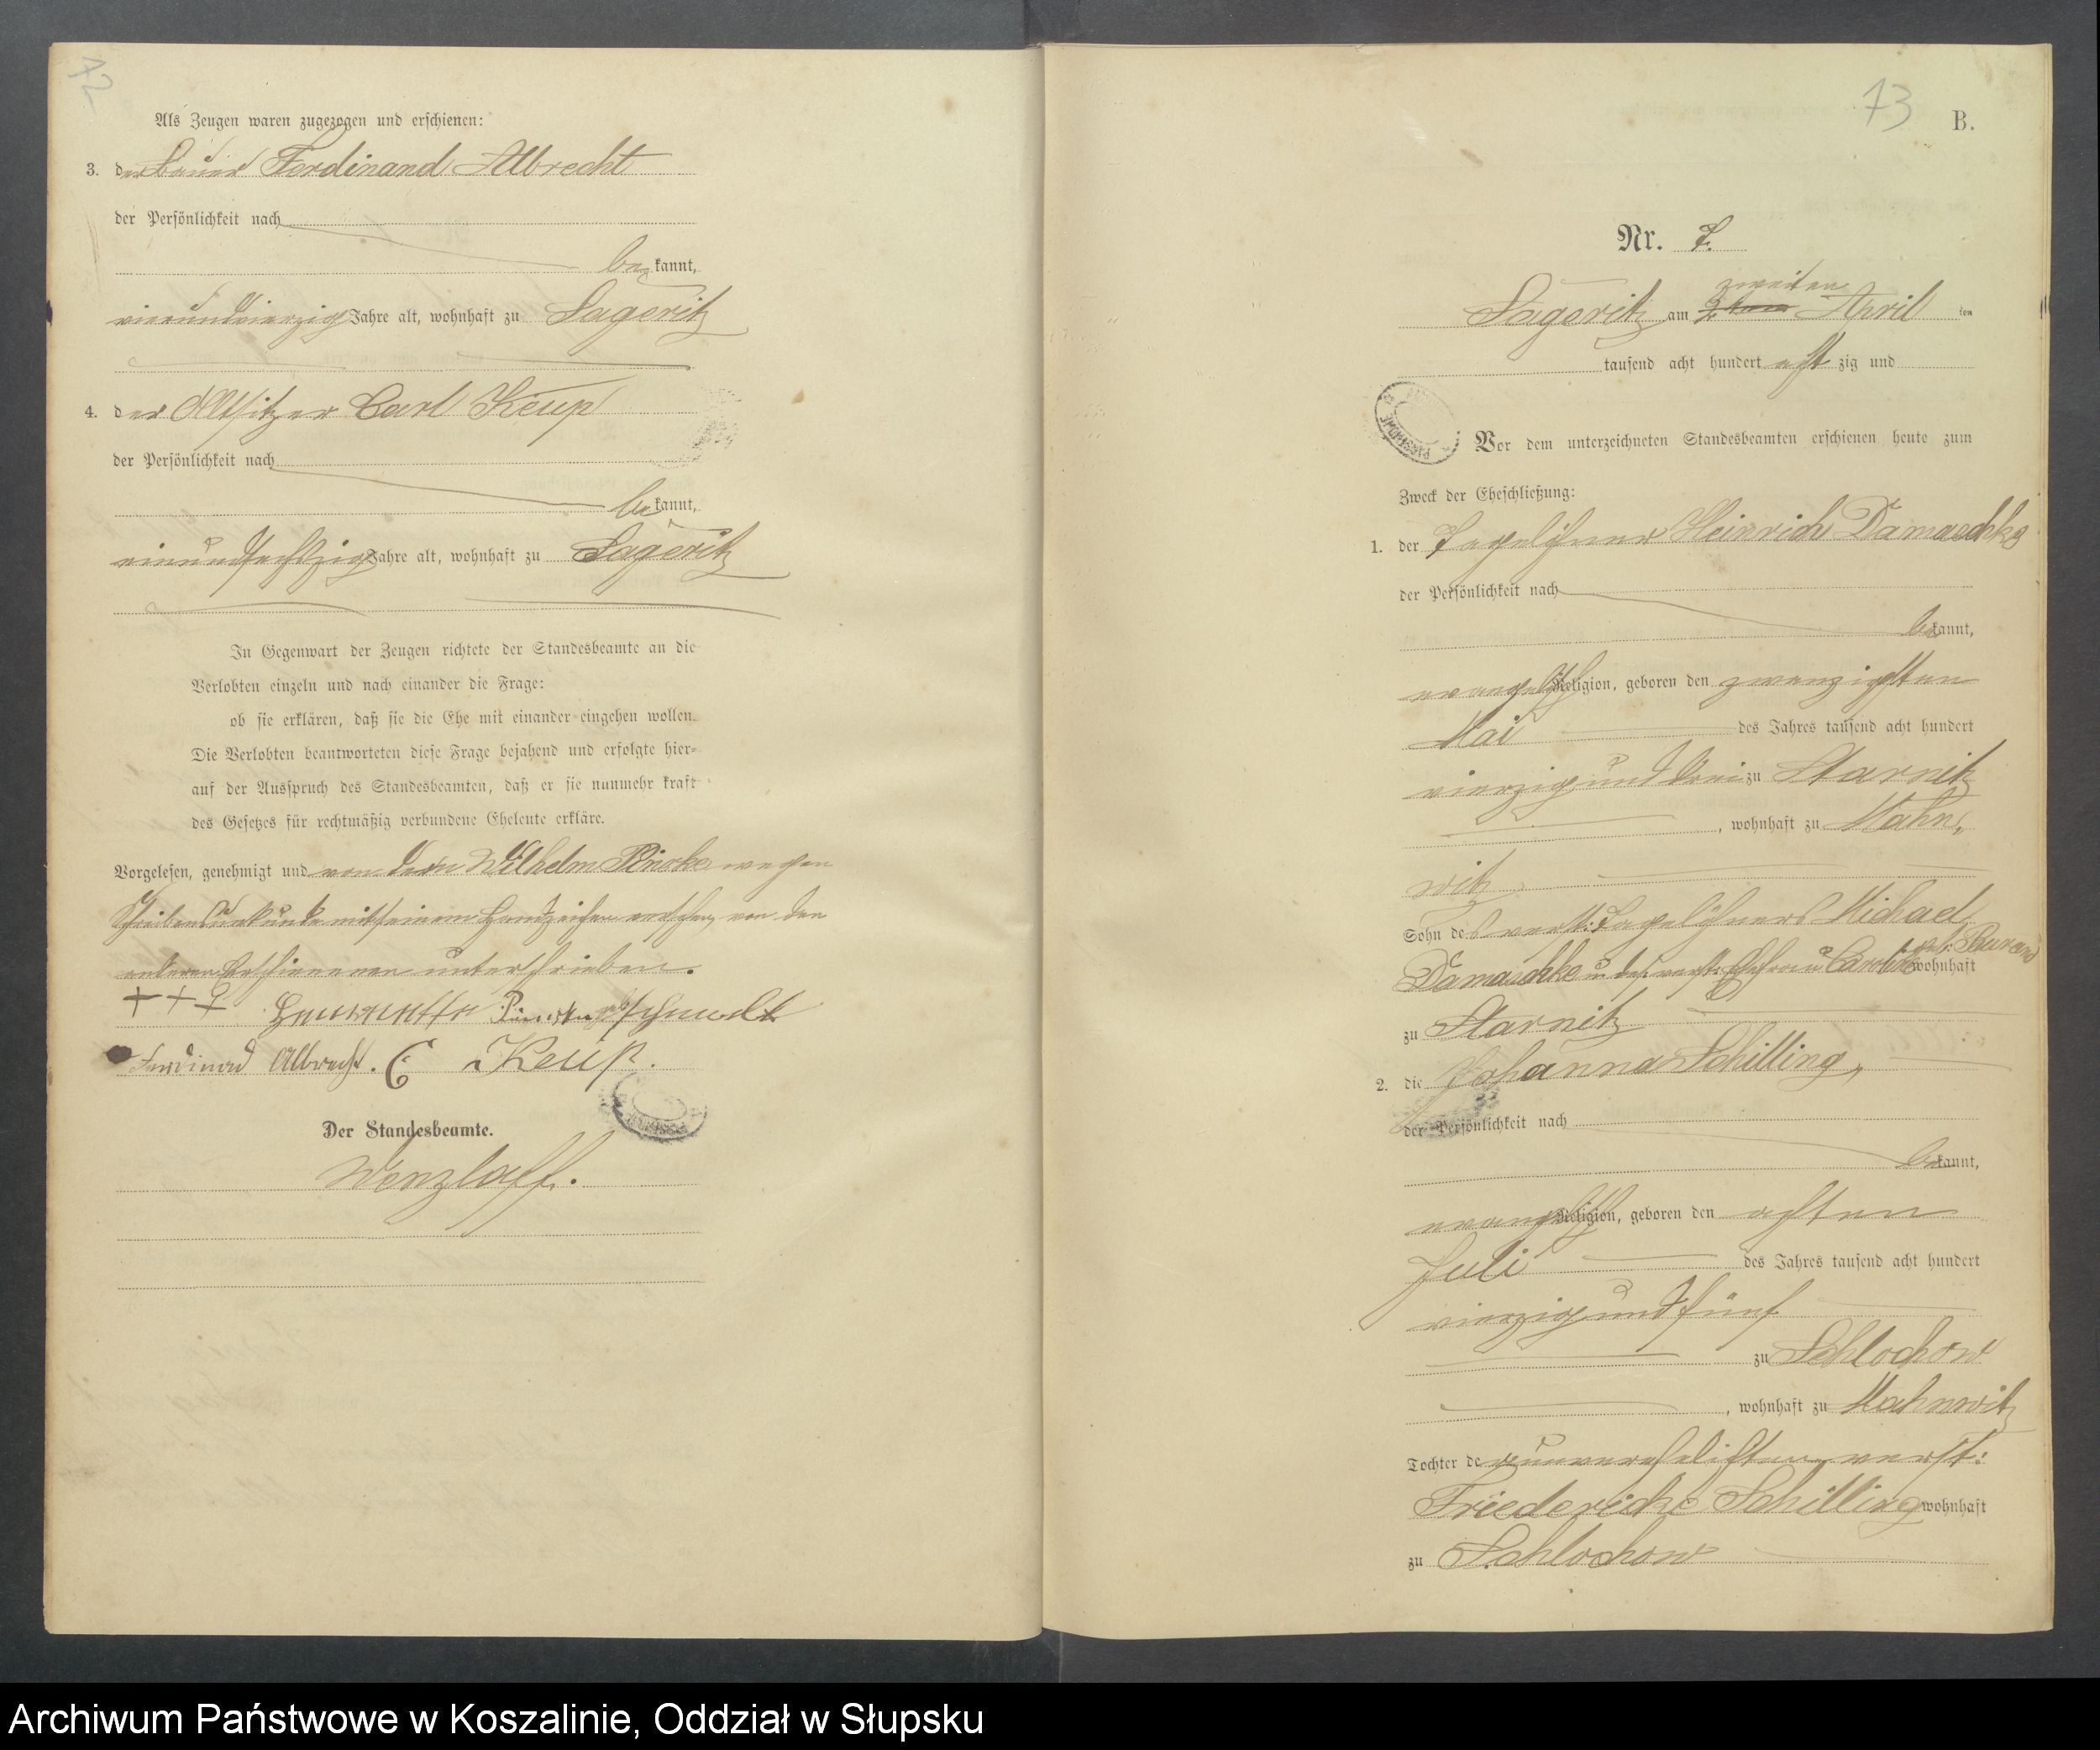 72
Als Zeugen waren zugezogen und erschienen:
3. der Bauer Ferdinand Albrecht
der Persönlichkeit nach
be kannt,
vierundvierzig Jahre alt, wohnhaft zu Sageritz
4. der Altsitzer Carl Keup
der Persönlichkeit nach
be kannt,
einundsechszig Jahre alt, wohnhaft zu Sageritz
In Gegenwart der Zeugen richtete der Standesbeamte an die
Verlobten einzeln und nach einander die Frage:
ob sie erklären, daß sie die Ehe mit einander eingehen wollen.
Die Verlobten beantworteten diese Frage bejahend und erfolgte hier-
auf der Ausspruch des Standesbeamten, daß er sie nunmehr kraft
des Gesetzes für rechtmäßig verbundene Eheleute erkläre.
Vorgelesen, genehmigt und von dem Wilhelm wegen
Schreibensunkunde mit seinem Handzeichen versehen, von den
anderen Erschienenen unterschrieben.
+++
Ferdinand Albrecht. C Keup.
Der Standesbeamte.
Wenzlaff.
73
B.
Nr. 7.
zweiten
Sageritz am April ten
tausend acht hundert acht zig und
Vor dem unterzeichneten Standesbeamten erschienen heute zum
Zweck der Eheschließung:
1. der Tagelöhner Heinrich Damaschke
der Persönlichkeit nach
be kannt,
evangelisch Religion, geboren den zwanzigsten
Mai des Jahres tausend acht hundert
vierzig und drei zu Starnitz
, wohnhaft zu Mahn-
witz
Sohn des verst: Tagelöhners Michael
Damaschke u. des. verst: Ehefrau Caroline geb: wohnhaft
zu Starnitz
2. die Johanna Schilling,
der Persönlichkeit nach
be kannt,
evangelisch Religion, geboren den achten
Juli des Jahres tausend acht hundert
vierzig und fünf
zu Schlochow
, wohnhaft zu Mahnwitz
Tochter der unverehelichten verst:
Friedericke Schilling wohnhaft
zu Schlochow
Archiwum Państwowe w Koszalinie, Oddział w Słupsku